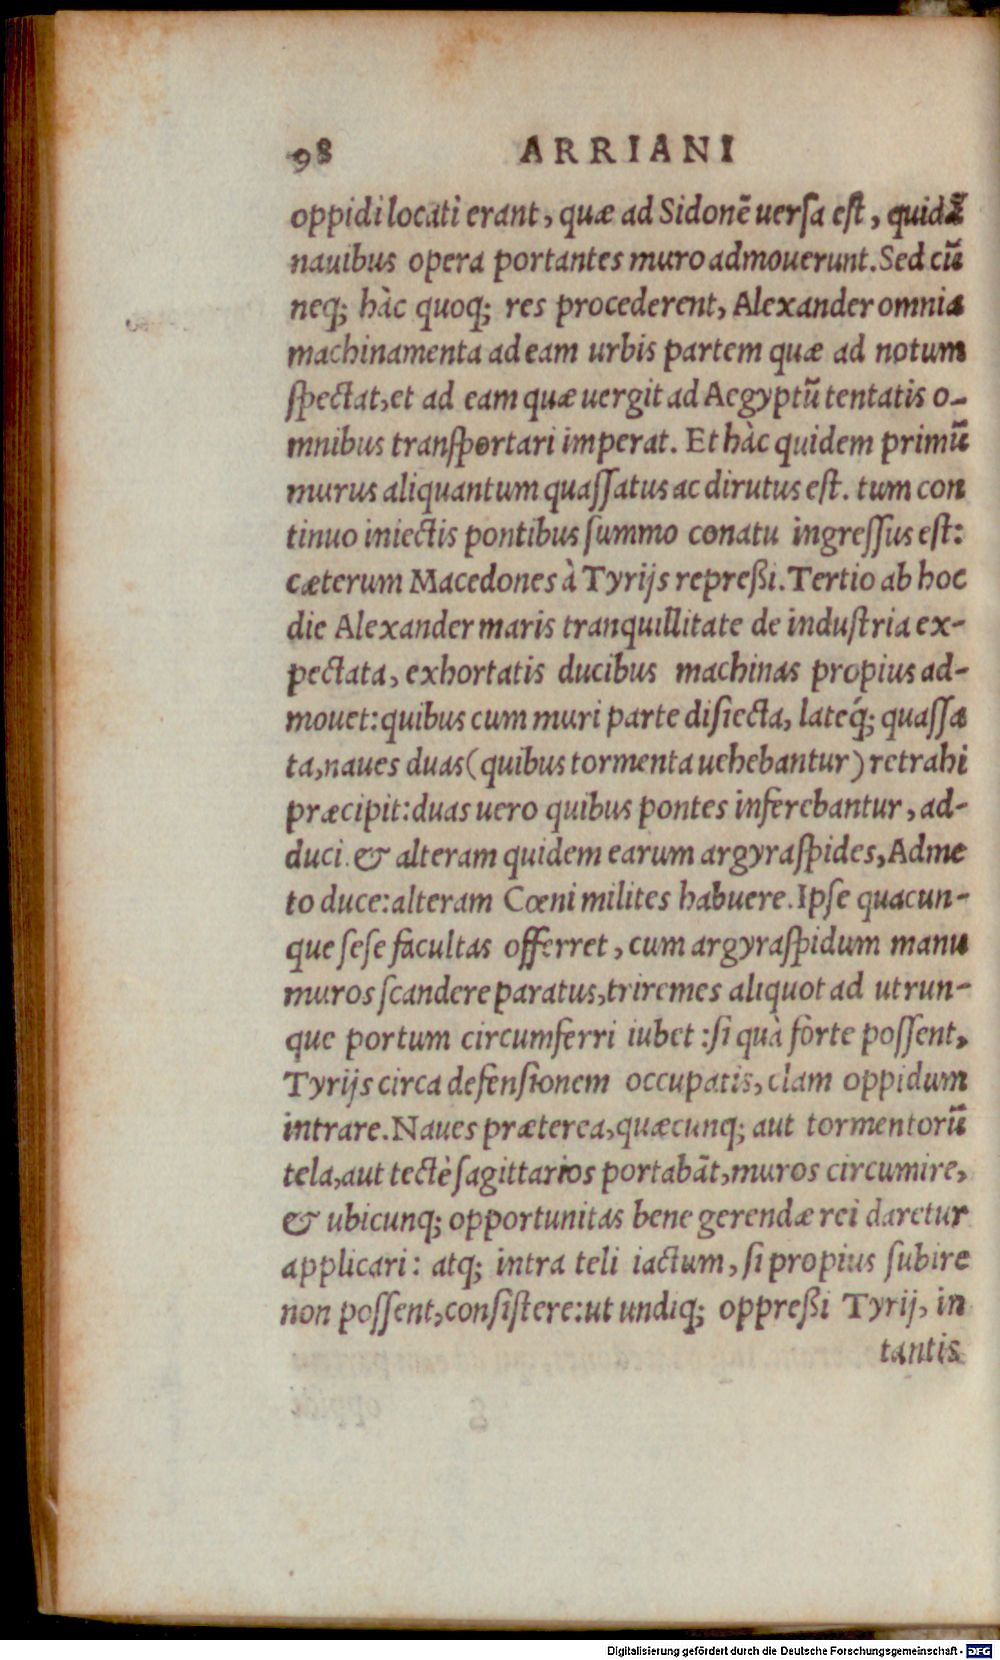 98 ARRIANI
oppidi locati erant, quæ ad Sidonẽ uerſa eſt, quidã
nauibus opera portantes muro admouerunt. Sed cũ
neq; hàc quoq; res procederent, Alexander omnia
machinamenta ad eam urbis partem quæ ad notum
ſpectat, et ad eam quæ uergit ad Aegyptũ tentatis o-
mnibus tranſportari imperat. Et hàc quidem primũ
murus aliquantum quaſſatus ac dirutus eſt. tum con
tinuo iniectis pontibus ſummo conatu ingreſſus eſt:
cæterum Macedones à Tyrijs repreßi. Tertio ab hoc
die Alexander maris tranquillitate de induſtria ex-
pectata, exhortatis ducibus machinas propius ad-
mouet: quibus cum muri parte diſiecta, lateq́; quaſſa
ta, naues duas (quibus tormenta uehebantur) retrahi
præcipit: duas uero quibus pontes inferebantur, ad-
duci. & alteram quidem earum argyraſpides, Adme
to duce: alteram Cœni milites habuere. Ipſe quacun-
que ſeſe facultas offerret, cum argyraſpidum manu
muros ſcandere paratus, triremes aliquot ad utrun-
que portum circumferri iubet: ſi quà fòrte poſſent,
Tyrijs circa defenſionem occupatis, clam oppidum
intrare. Naues præterea, quæcunq; aut tormentorũ
tela, aut tectè ſagittarios portabãt, muros circumire,
& ubicunq; opportunitas bene gerendæ rei daretur
applicari: atq; intra teli iactum, ſi propius ſubire
non poſſent, conſiſtere: ut undiq; oppreßi Tyrij, in
tantis
Digitalisierung gefördert durch die Deutsche Forschungsgemeinschaft - DFG